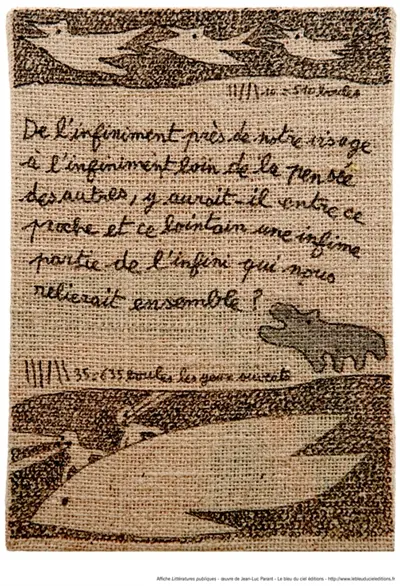 10 = 510 boules
De l'infiniment près de notre visage
à l'infiniment loin de la pensée
des autres, y aurait-il entre ce
proche et ce lointain une infime
partie de l'infini qui nous
relierait ensemble ?
35 = 635 boules les yeux ouverts
Affiche Littératures publiques - œuvre de Jean-Luc Parant - Le bleu du ciel éditions - http://www.lebleuducieleditions.fr